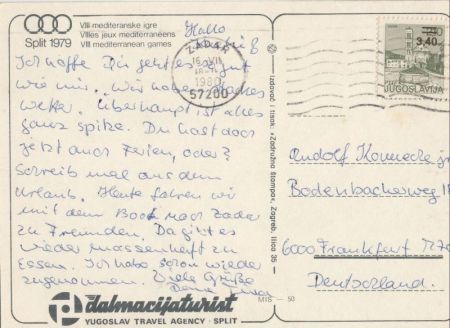 VIII mediteranske igre
VIIIes jeux méditerranéens
VIII mediterranean games
Split 1979
Hallo
Ich hoffe Dir geht es so gut
wie mir. Wir haben
Wetter. Überhaupt ist alles
ganz spitze. Du hast doch
jetzt auch Ferien, oder?
Schreib mal aus dem
Urlaub. Heute fahren wir
mit dem Boot nach Zadar
zu Freunden. Da gibt es
wieder massenhaft zu
Essen. Ich habe schon wieder
zugenommen. Viele Grüße
Deine
dalmacijaturist
YUGOSLAV TRAVEL AGENCY · SPLIT
MIS — 50
Izdavač i tisak: »Zadružna štampa«, Zagreb, Ilica 35 —
ZADAR
1980
57200
2.40
3,40
JUGOSLAVIJA
Rudolf
Bodenbacherweg
6000 Frankfurt
Deutschland.